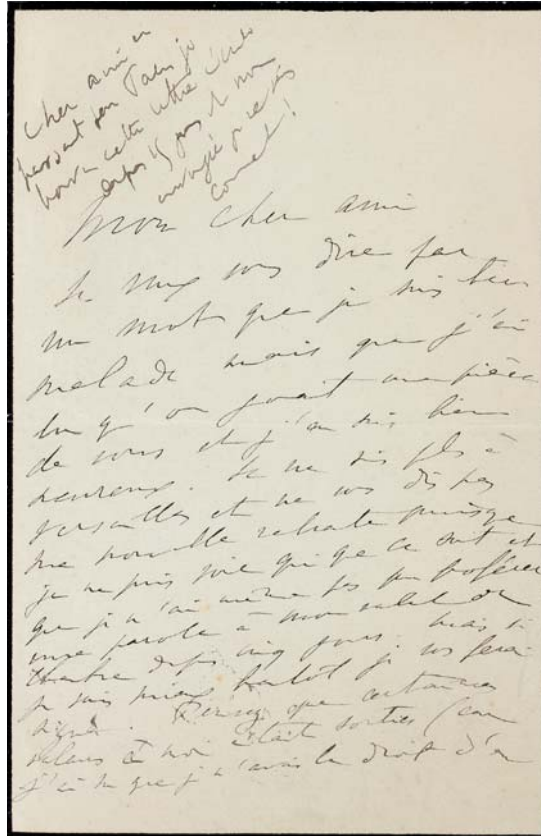 Cher ami en
passant par Paris je
trouve cette lettre écrite
depuis 15 jours et non
envoyée par
Mon cher ami
Je veux vous dire par
un mot que je suis bien
malade mais que j'ai
lu qu'on jouait une pièce
de vous et j'en suis bien
heureux. Je ne suis plus à
Versailles et ne vous dis pas
ma nouvelle retraite puisque
je ne puis voir qui que ce soit et
que je n'ai même pas pu proférer
une parole à mon valet de
chambre depuis cinq jours. Mais si
je suis mieux bientôt je vous ferai
signe. Pensez que certaines
valeurs à moi étaient sorties (car
j'ai su que je n'avais le droit d'en